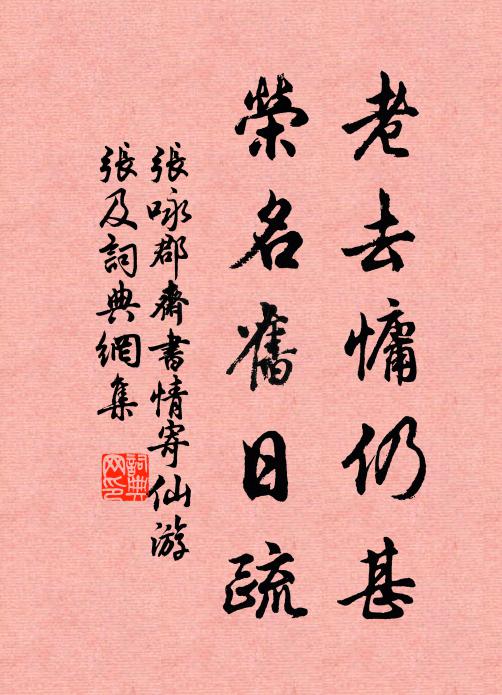 老去慵仍甚
榮名舊日疏
張咏郡齋書情寄仙游
張及詞典網集
詞典網印